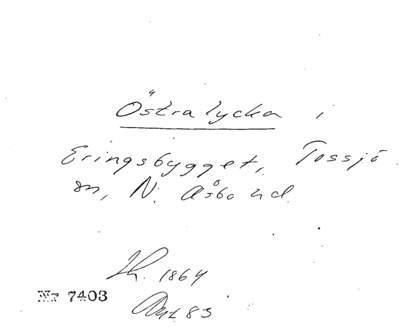 Östralycka i
Eringsbygget, Tossjö
sn, N. Åsbo hd.
Lh. 1864
Nr 7403
Akt 83